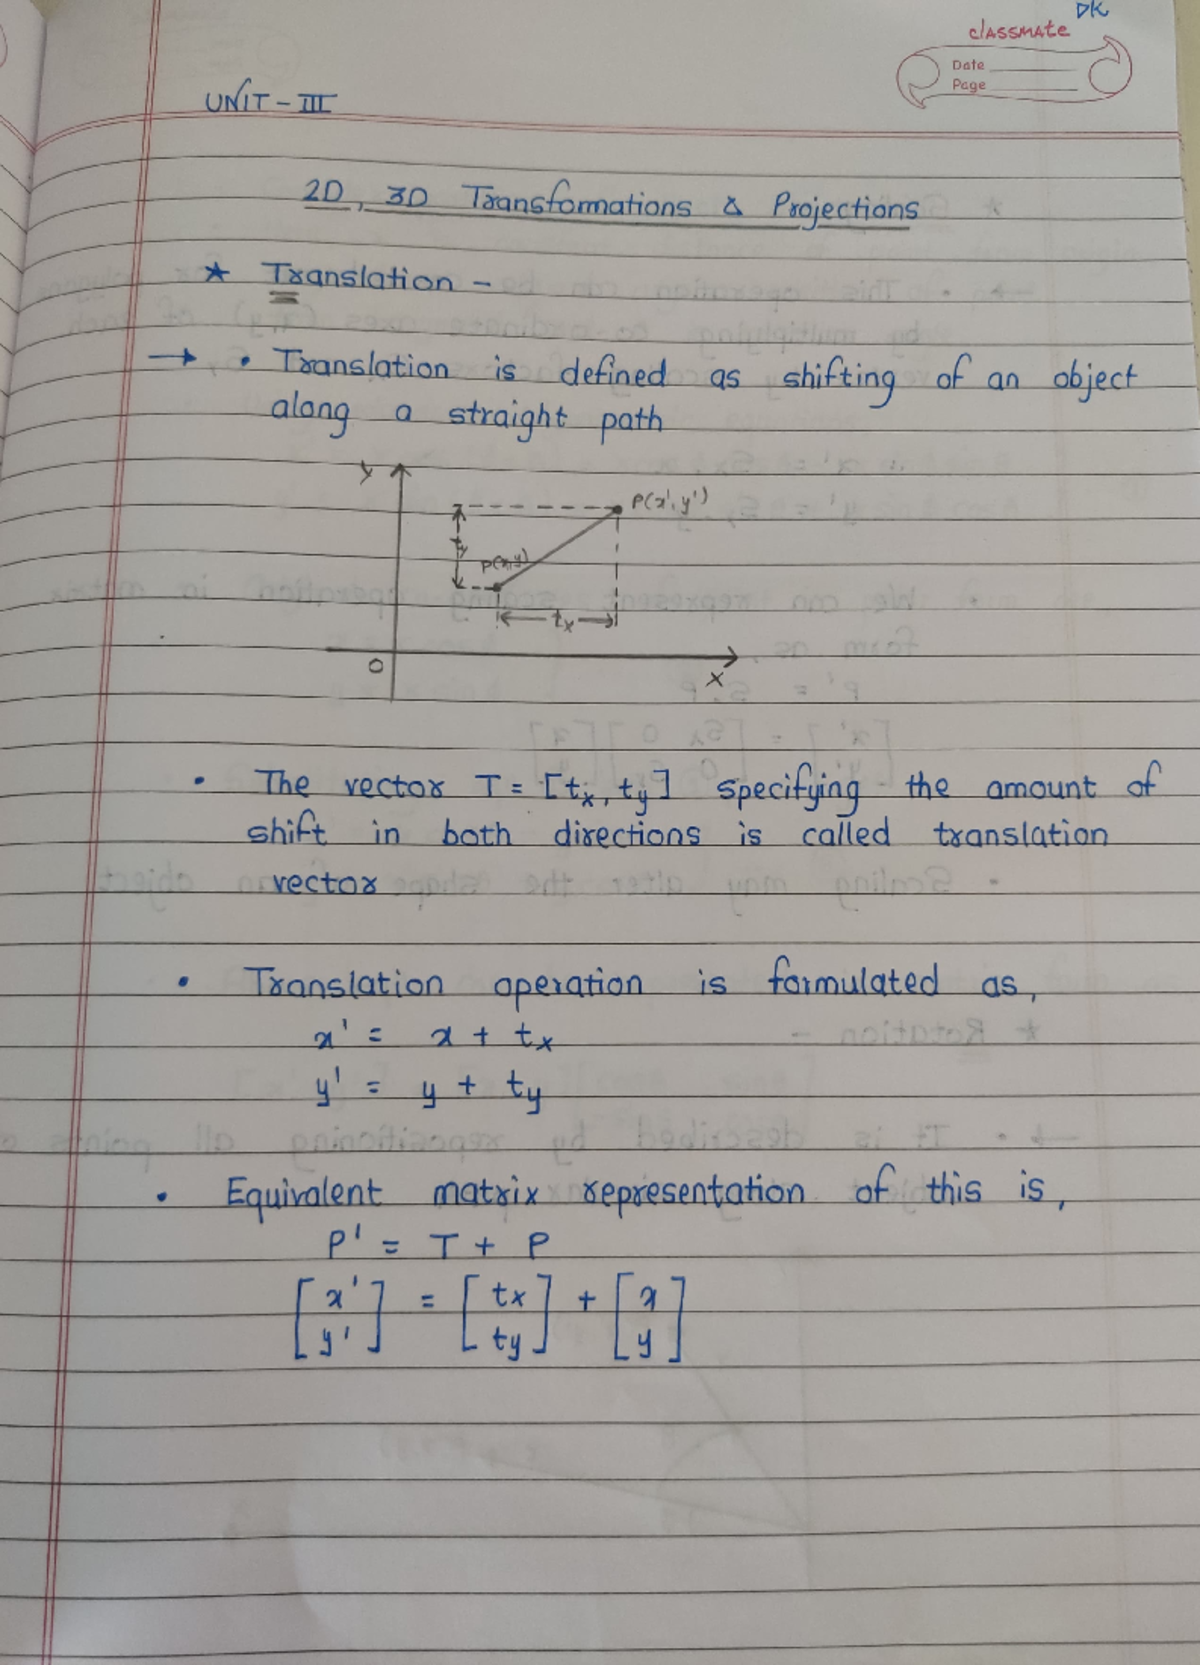 DK
classmate
Date
Page
UNIT - III
2D, 3D Transformations & Projections
* Translation -
→ • Translation is defined as shifting of an object
along a straight path
y
P(x', y')
ty
P(x, y)
tx
O
x
• The vector T = [tx, ty] specifying the amount of
shift in both directions is called translation
vector
• Translation operation is formulated as,
x' = x + tx
y' = y + ty
• Equivalent matrix representation of this is,
P' = T + P
[x'] = [tx] + [x]
[y'] [ty] [y]